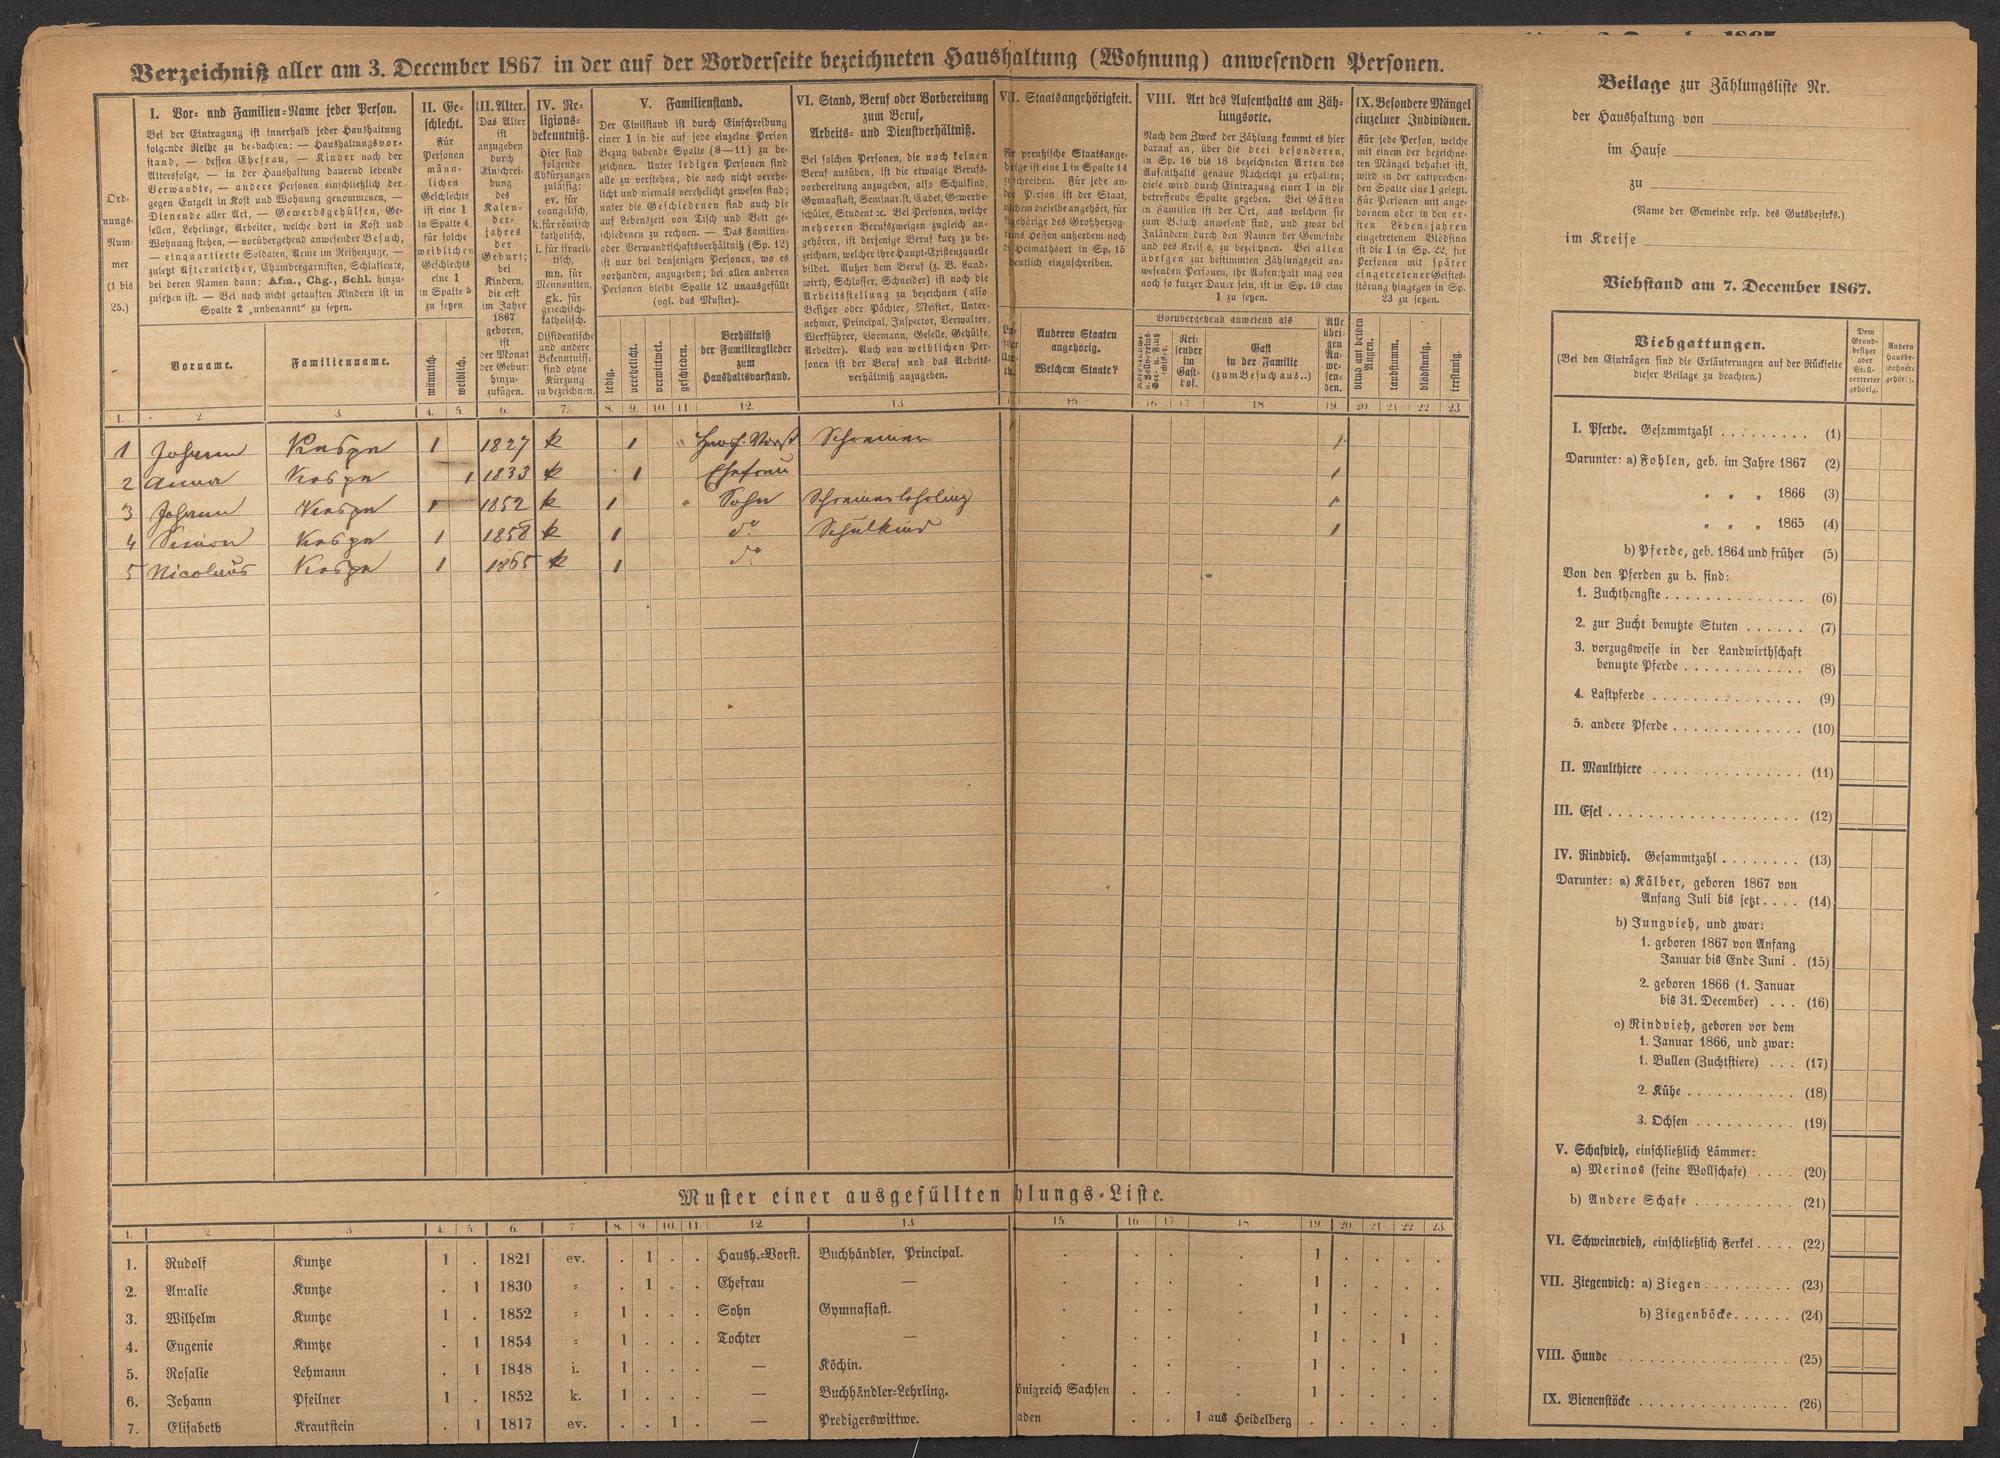 Verzeichniß aller am 3. December 1867 in der auf der Vorderseite bezeichneten Haushaltung (Wohnung) anwesenden Personen.
Ord-
nungs-
Num-
mer
(1 bis
25.)
I. Vor- und Familien-Name jeder Person.
Bei der Eintragung ist innerhalb jeder Haushaltung
folgende Reihe zu beobachten: — Haushaltungsvor-
stand, — dessen Ehefrau, — Kinder nach der
Altersfolge, — in der Haushaltung dauernd lebende
Verwandte, — andere Personen einschließlich der
gegen Entgelt in Kost und Wohnung genommenen, —
Dienende aller Art, — Gewerbsgehülfen, Ge-
sellen, Lehrlinge, Arbeiter, welche dort in Kost und
Wohnung stehen, — vorübergehend anwesender Besuch,
— einquartierte Soldaten, Arme im Reihenzuge, —
zuletzt Aftermiether, Chambregarnisten, Schlafleute,
bei deren Namen dann: Afm., Chg., Schl. hinzu-
zusetzen ist. — Bei noch nicht getauften Kindern ist in
Spalte 2 „unbenannt“ zu setzen.
Vorname.
Familienname.
II. Ge-
schlecht.
Für
Personen
männ-
lichen
Geschlechts
ist eine 1
in Spalte 4,
für solche
weiblichen
Geschlechts
eine 1
in Spalte 5
zu setzen
männlich.
weiblich.
III. Alter.
Das Alter
ist
anzugeben
durch
Einschrei-
bung
des
Kalen-
der-
jahres
der
Geburt;
bei
Kindern,
die erst
im Jahre
1867
geboren,
ist
der Monat
der Geburt
hinzu-
zufügen.
IV. Re-
ligions-
bekenntniß.
Hier sind
folgende
Abkürzungen
zulässig:
ev. für
evangelisch,
k. für römisch
katholisch,
i. für israeli-
tisch,
mn. für
Mennoniten,
gk. für
griechisch-
katholisch.
Dissidentische
und andere
Bekenntnisse
sind ohne
Kürzung
zu bezeichnen.
V. Familienstand.
Der Civilstand ist durch Einschreibung
einer 1 in die auf jede einzelne Person
Bezug habende Spalte (8—11) zu be-
zeichnen. Unter ledigen Personen sind
alle zu verstehen, die noch nicht verehe-
licht und niemals verehelicht gewesen sind;
unter die Geschiedenen sind auch die
auf Lebenszeit von Tisch und Bett ge-
schiedenen zu rechnen. — Das Familien-
oder Verwandtschaftsverhältniß (Sp. 12)
ist nur bei denjenigen Personen, wo es
vorhanden, anzugeben; bei allen anderen
Personen bleibt Spalte 12 unausgefüllt
(vgl. das Muster).
ledig.
verehelicht.
verwittwet.
geschieden.
Verhältniß
der Familienglieder
zum
Haushaltsvorstand.
VI. Stand, Beruf oder Vorbereitung
zum Beruf,
Arbeits- und Dienstverhältniß.
Bei solchen Personen, die noch keinen
Beruf ausüben, ist die etwaige Berufs-
vorbereitung anzugeben, also Schulkind,
Gymnasiast, Seminarist, Cadet, Gewerbe-
schüler, Student ꝛc. Bei Personen, welche
mehreren Berufszweigen zugleich an-
gehören, ist derjenige Beruf kurz zu be-
zeichnen, welcher ihre Haupt-Existenzquelle
bildet. Außer dem Beruf (z. B. Land-
wirth, Schlosser, Schneider) ist noch die
Arbeitsstellung zu bezeichnen (also
Besitzer oder Pächter, Meister, Unter-
nehmer, Principal, Inspector, Verwalter,
Werkführer, Vormann, Geselle, Gehülfe,
Arbeiter). Auch von weiblichen Per-
sonen ist der Beruf und das Arbeits-
verhältniß anzugeben.
VII. Staatsangehörigkeit.
Anderen Staaten
angehörig.
Welchem Staate?
VIII. Art des Aufenthalts am Zäh-
lungsorte.
Nach dem Zweck der Zählung kommt es hier
darauf an, über die drei besonderen,
in Sp. 16 bis 18 bezeichneten Arten des
Aufenthalts genaue Nachricht zu erhalten;
diese wird durch Eintragung einer 1 in die
betreffende Spalte gegeben. Bei Gästen
in Familien ist der Ort, aus welchem sie
zum Besuch anwesend sind, und zwar bei
Inländern durch den Namen der Gemeinde
und des Kreises, zu bezeichnen. Bei allen
übrigen zur bestimmten Zählungszeit an-
wesenden Personen, ihr Aufenthalt mag von
noch so kurzer Dauer sein, ist in Sp. 19 eine
1 zu setzen.
Vorübergehend anwesend als
Rei-
sender
im
Gast-
hof.
Gast
in der Familie
(zum Besuch aus..)
Alle
übri-
gen
An-
we-
sen-
den.
IX. Besondere Mängel
einzelner Individuen.
Für jede Person, welche
mit einem der bezeichne-
ten Mängel behaftet ist,
wird in der entsprechen-
den Spalte eine 1 gesetzt.
Für Personen mit ange-
bornem oder in den er-
sten Lebensjahren
eingetretenem Blödsinn
ist die 1 in Sp. 22, für
Personen mit später
eingetretener Geistes-
störung hingegen in Sp.
23 zu setzen.
blind auf beiden Augen.
taubstumm.
blödsinnig.
irrsinnig.
1. 2 3. 4. 5. 6. 7. 8. 9. 10. 11. 12. 13. 15. 16. 17. 18. 19. 20. 21. 22. 23.
1 Johann Kaspar 1 1827 k 1 Schreiner 1
2 Anna Kaspar 1 1833 k 1 Ehefrau 1
3 Johann Kaspar 1 1852 k 1 Sohn Schreinerlehrling 1
4 Simon Kaspar 1 1858 k 1 do. Schulkind 1
5 Nicolaus Kaspar 1 1865 k 1 do.
Muster einer ausgefüllten hlungs-Liste.
1. 2 3 4. 5. 6. 7 8. 9. 10. 11. 12 13 15 16 17 18 19 20. 21 22 23.
1. Rudolf Kuntze 1 . 1821 ev. . 1 . . Haush.-Vorst. Buchhändler, Principal. . . . . 1 . . . .
2. Amalie Kuntze . 1 1830 " . 1 . . Ehefrau — . . . . 1 . . . .
3. Wilhelm Kuntze 1 . 1852 " 1 . . . Sohn Gymnasiast. . . . . 1 . . . .
4. Eugenie Kuntze . 1 1854 " 1 . . . Tochter — . . . . 1 . . 1 .
5. Rosalie Lehmann . 1 1848 i. 1 . . . — Köchin. . . . . 1 . . . .
6. Johann Pfeilner 1 . 1852 k. 1 . . . — Buchhändler-Lehrling. önigreich Sachsen . . . 1 . . . .
7. Elisabeth Krautstein . 1 1817 ev. . . 1 . — Predigerswittwe. aden . . 1 aus Heidelberg . . . . .
Beilage zur Zählungsliste Nr.
der Haushaltung von
im Hause
zu
(Name der Gemeinde resp. des Gutsbezirks.)
im Kreise
Viehstand am 7. December 1867.
Viehgattungen.
(Bei den Einträgen sind die Erläuterungen auf der Rückseite
dieser Beilage zu beachten.)
Dem
Grund-
besitzer
oder
Stell-
vertreter
gehörig.
Andern
Hausbe-
wohnern
gehörig.
I. Pferde. Gesammtzahl . . . . . . . . . (1)
Darunter: a) Fohlen, geb. im Jahre 1867 (2)
" " " 1866 (3)
" " " 1865 (4)
b) Pferde, geb. 1864 und früher (5)
Von den Pferden zu b. sind:
1. Zuchthengste . . . . . . . . . . . . . . (6)
2. zur Zucht benutzte Stuten . . . . . . (7)
3. vorzugsweise in der Landwirthschaft
benutzte Pferde . . . . . . . . . . . . (8)
4. Lastpferde . . . . . . . . . . . . . . . (9)
5. andere Pferde . . . . . . . . . . . . . (10)
II. Maulthiere . . . . . . . . . . . . . . . . (11)
III. Esel . . . . . . . . . . . . . . . . . . . (12)
IV. Rindvieh. Gesammtzahl . . . . . . . . (13)
Darunter: a) Kälber, geboren 1867 von
Anfang Juli bis jetzt . . . . (14)
b) Jungvieh, und zwar:
1. geboren 1867 von Anfang
Januar bis Ende Juni . (15)
2. geboren 1866 (1. Januar
bis 31. December) . . . (16)
c) Rindvieh, geboren vor dem
1. Januar 1866, und zwar:
1. Bullen (Zuchtstiere) . . . (17)
2. Kühe . . . . . . . . . . . (18)
3. Ochsen . . . . . . . . . . (19)
V. Schafvieh, einschließlich Lämmer:
a) Merinos (feine Wollschafe) . . . . (20)
b) Andere Schafe . . . . . . . . . . . (21)
VI. Schweinevieh, einschließlich Ferkel . . . . (22)
VII. Ziegenvieh: a) Ziegen . . . . . . . . . (23)
b) Ziegenböcke . . . . . . (24)
VIII. Hunde . . . . . . . . . . . . . . . . . (25)
IX. Bienenstöcke . . . . . . . . . . . . . . . (26)